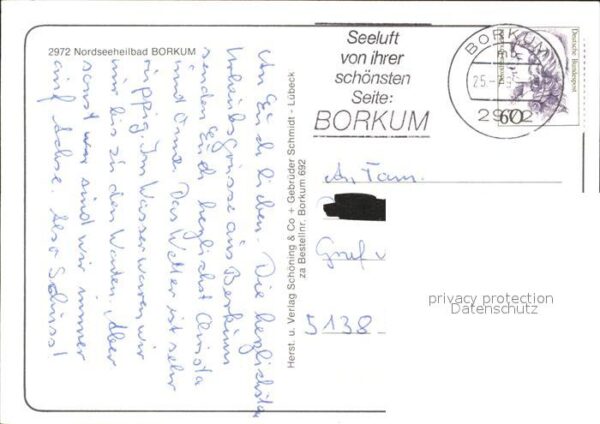 2972 Nordseeheilbad BORKUM
An Euch lieben. Die herzlichsten
Urlaubsgrüsse aus Borkum
senden Euch herzlichst Christa
und Oma. Das Wetter ist sehr
rüppig. Im Wasser waren wir
nur bis zu den Waden, Aber
sonst wan sind wir immer
auf Achse. Also Schüss!
Herst. u. Verlag Schöning & Co + Gebrüder Schmidt - Lübeck
za Bestellnr. Borkum 692
Seeluft
von ihrer
schönsten
Seite:
BORKUM
BORKUM
25.-
2972
Deutsche Bundespost
60
An Fam.
Graf
5138-
privacy protection
Datenschutz